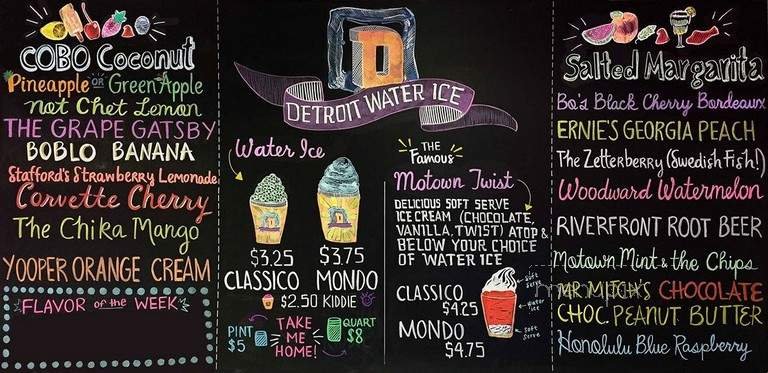 COBO Coconut
Pineapple OR Green Apple
Not Chet Lemon
THE GRAPE GATSBY
BOBLO BANANA
Stafford's Strawberry Lemonade
Corvette Cherry
The Chika Mango
YOOPER ORANGE CREAM
FLAVOR of the WEEK
D
DETROIT WATER ICE
Water Ice
$3.25
CLASSICO
$3.75
MONDO
$2.50 KIDDIE
PINT
$5
TAKE
ME
HOME!
QUART
$8
THE
Famous
Motown Twist
DELICIOUS SOFT SERVE
ICE CREAM (CHOCOLATE,
VANILLA, TWIST) ATOP &
BELOW YOUR CHOICE
OF WATER ICE
CLASSICO
$4.25
MONDO
$4.75
Soft Serve
Water Ice
Soft Serve
Salted Margarita
Bo's Black Cherry Bordeaux
ERNIE'S GEORGIA PEACH
The Zetterberry (Swedish Fish!)
Woodward Watermelon
RIVERFRONT ROOT BEER
Motown Mint & the Chips
MR. MITCH'S CHOCOLATE
CHOC. PEANUT BUTTER
Honolulu Blue Raspberry